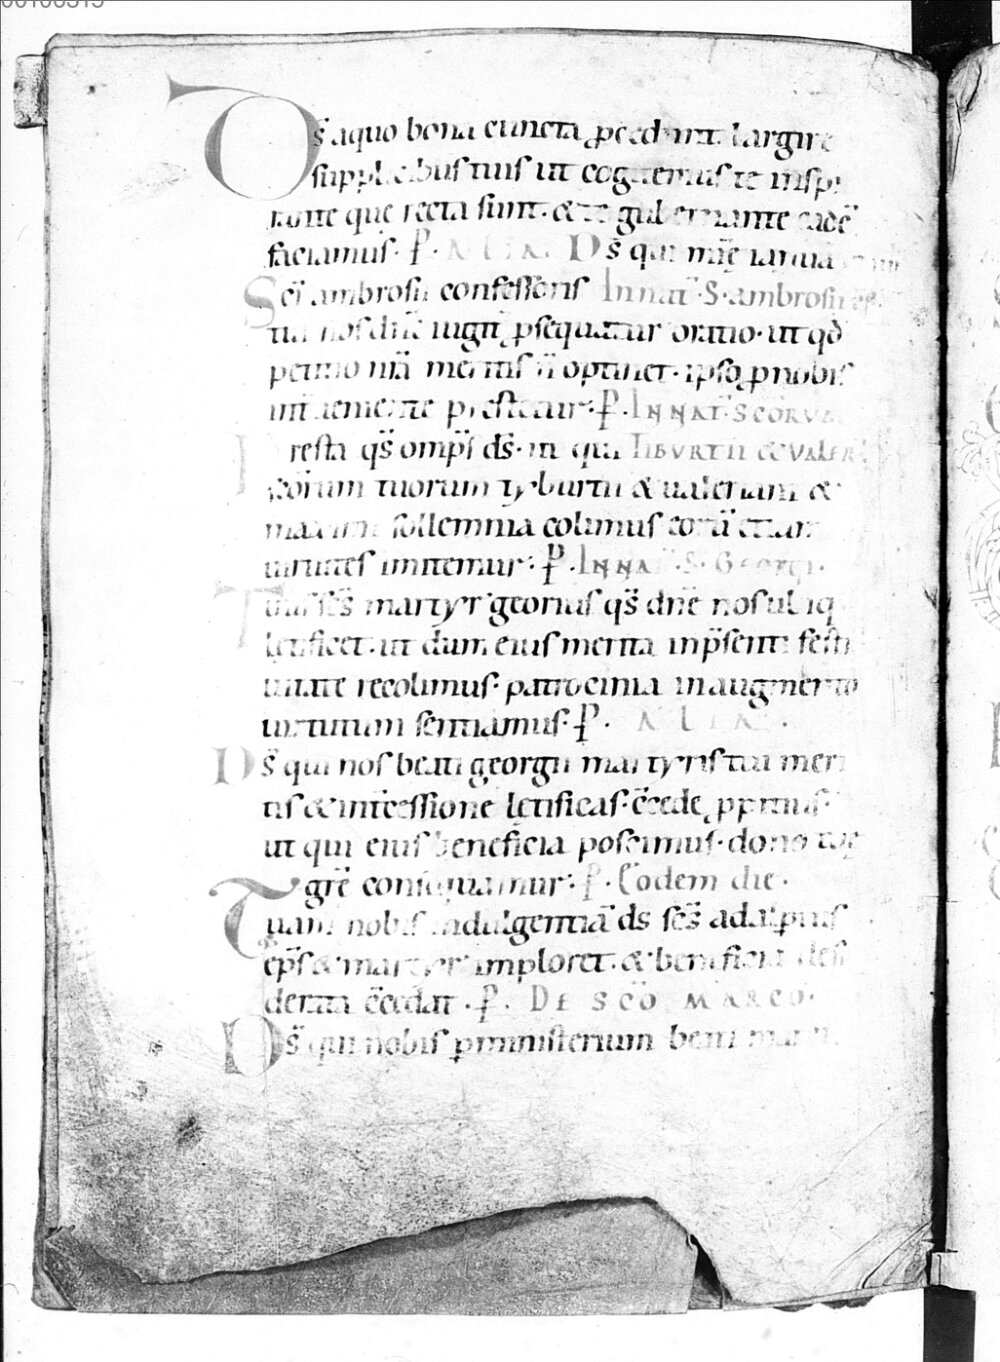 Ds̄ aquo bona cuncta ꝓcedunt largire
supplicibus tuis ut cogitemus te inspi
rante quę recta sunt · & te gubernante eadē
faciamus · P · ALIA · Ds̄ qui
Sc̄i ambrosii confessoris In nat̄ · S · ambrosii
tui nos dn̄e iugit̄ ꝓsequatur oratio · ut qd̄
petitio nr̄a meritis ñ optinet · ipsoꝝ ꝓ nobis
intueniente prestetur · P · IN NAT̄ · SCORUM
Presta qs̄ omps̄ ds̄ · ut qui TIBURTII & VALER
scōrum tuorum tyburtii & ualeriani &
maximi sollemnia colimus eorū etiam
uirtutes imitemur · P · IN NAT̄ · S · GEORGI ·
Tuus sc̄s martyr georius qs̄ dn̄e nos ubiq
lętificet · ut dum eius merita in p̄senti festi
uitate recolimus · patrocinia in augmento
uirtutum sentiamus · P · ALIA ·
Ds̄ qui nos beati georgii martyris tui meri
tis & intercessione lętificas · c̄cede ꝓpitius ·
ut qui eius beneficia poscimus · dono tuę
grę̄ consequamur · P · Eodem die ·
Tuam nobis indulgentiā ds̄ sc̄s adalpertus
ep̄s & martyr imploret · & beneficia desi
derata c̄cedat · P · DE SCO MARCO ·
Ds̄ qui nobis ꝓ ministerium beati marci